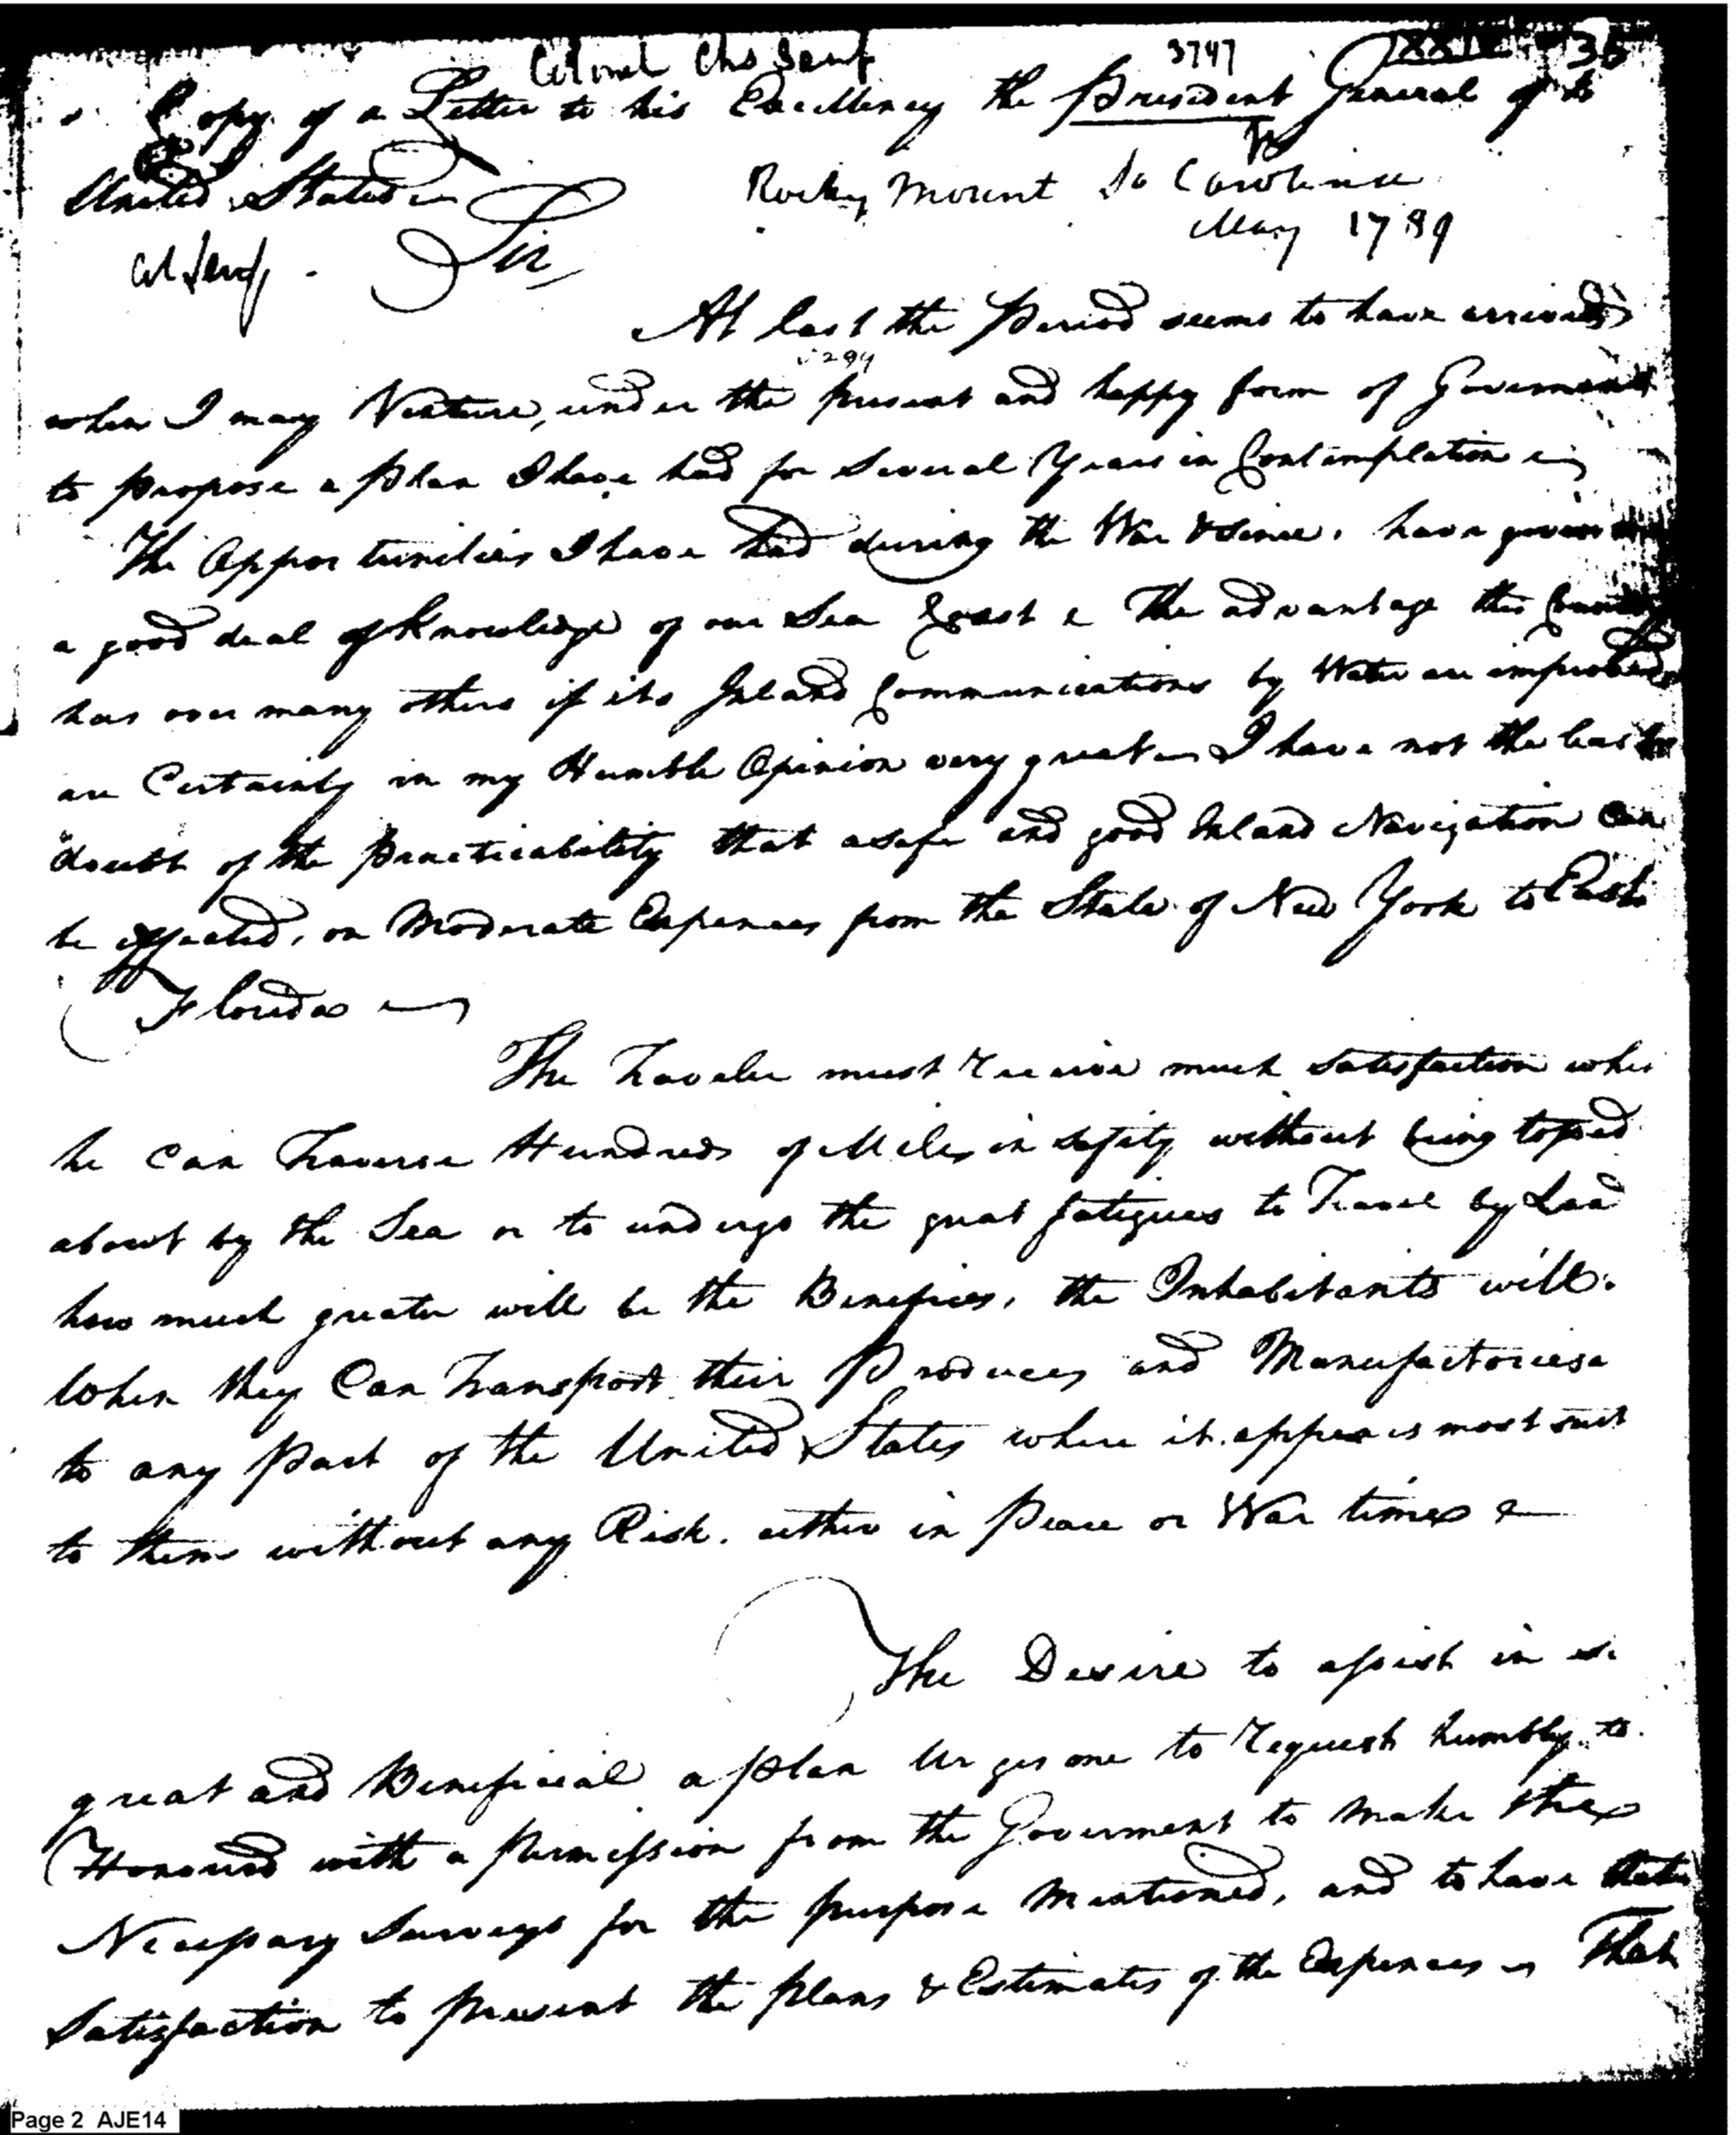 Colonel Chs Senf
3747
XXIV 36
Copy of a Letter to his Excellency the President General of the
United States
Rocky Mount So Carolina
May 1789
Col Senf.
Sir
At last the Period seems to have arrived
294
when I may Venture, under the present and happy form of Government
to propose a plan I have had for several Years in Contemplation
The Opportunities I have had during the War & since, have given
a good deal of Knowledge of our Sea Coast & The advantage this Country
has over many others if its Inland Communications by Water are improved
are Certainly in my Humble Opinion very great I have not the least
doubt of the Practicability that a safe and good Inland Navigation Can
be effected, on Moderate Expences from the State of New York to East
Florida
The Traveler must receive much satisfaction when
he Can Traverse Hundreds of Miles in safety without being tossed
about by the Sea or to undergo the great fatigues to Travel by Land
how much greater will be the Benefices, the Inhabitants will.
When they Can Transport their Produces and Manufactories
to any Part of the United States where it appears most suit
to them without any Risk. either in Peace or War times
The Desire to assist in so
great and Beneficial a plan Urges me to request humbly to
Honoured with a permission from the Goverment to make the
Necessary Surveys for the purpose Mentioned, and to have the
Satisfaction to present the plans & Estimates of the Expences That
Page 2 AJE14